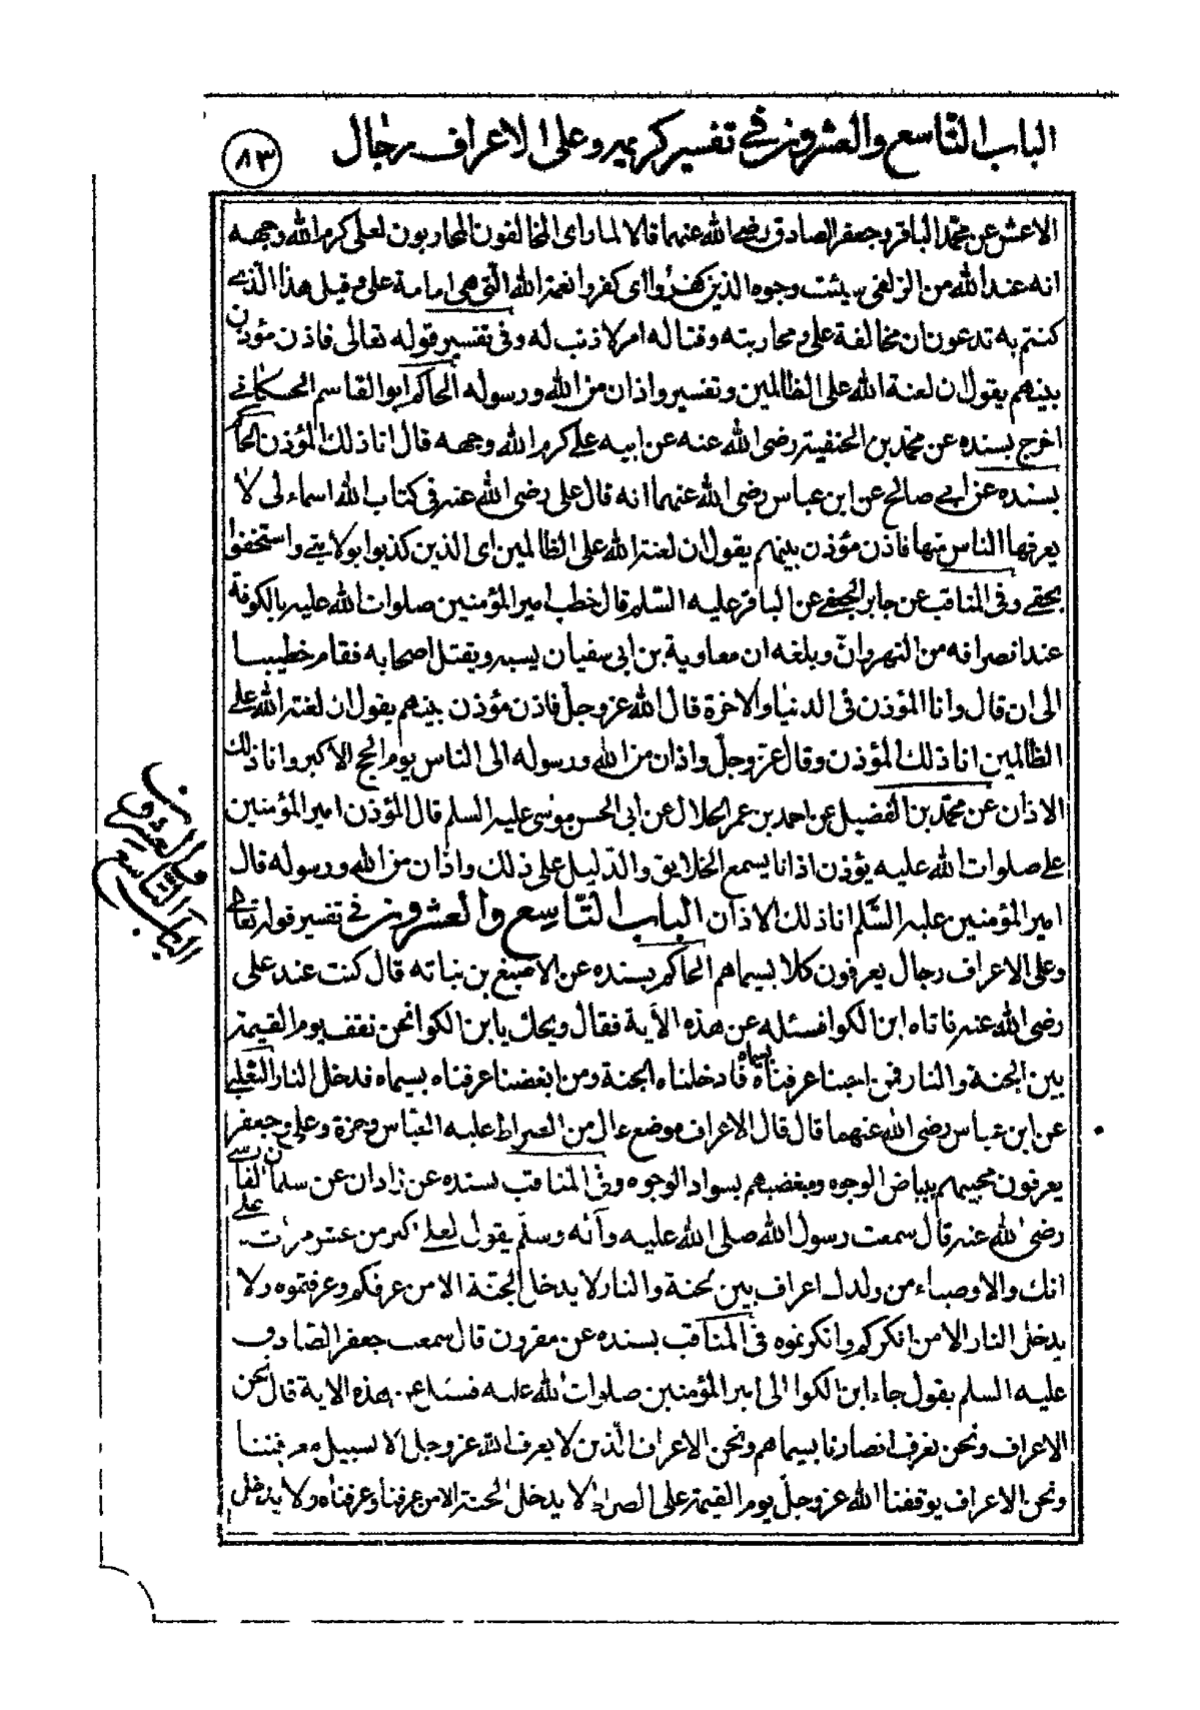 الباب التاسع والعشرون في تفسير كريمه وعلى الاعراف رجال
٨٣
الاعمش عن محمد الباقر وجعفر الصادق رضي الله عنهما قالا لما راى المخالفون المحاربون لعلى كرم الله وجهه
انه عند الله من الزلفى سيئت وجوه الذين كفروا اى كفروا نعمة الله التي هي امامة على وقيل هذا الذي
كنتم به تدعون ان مخالفة على ومحاربته وقتاله امر لا ذنب له وفى تفسير قوله تعالى فاذن مؤذن
بينهم يقول ان لعنة الله على الظالمين وتفسير واذان من الله ورسوله الحاكم ابو القاسم الحسكاني
اخرج بسنده عن محمد بن الحنفية رضى الله عنه عن ابيه على كرم الله وجهه قال انا ذلك المؤذن الحاكم
بسنده عن ابي صالح عن ابن عباس رضى الله عنهما انه قال على رضى الله عنه فى كتاب الله اسماء لى لا
يعرفها الناس منها فاذن مؤذن بينهم يقول ان لعنة الله على الظالمين اى الذين كذبوا بولايتي واستخفوا
بحقي وفى المناقب عن جابر الجعفي عن الباقر عليه السلم قال خطب امير المؤمنين صلوات الله عليه بالكوفة
عند انصرافه من النهروان وبلغه ان معاوية بن ابى سفيان يسبه ويقتل اصحابه فقام خطيبا
الى ان قال وانا المؤذن فى الدنيا والاخرة قال الله عز وجل فاذن مؤذن بينهم يقول ان لعنة الله على
الظالمين انا ذلك المؤذن وقال عز وجل واذان من الله ورسوله الى الناس يوم الحج الاكبر وانا ذلك
الاذان عن محمد بن الفضيل عن احمد بن عمر الحلال عن ابى الحسن موسى عليه السلم قال المؤذن امير المؤمنين
على صلوات الله عليه يؤذن اذانا يسمع الخلايق والدليل على ذلك واذان من الله ورسوله قال
امير المؤمنين عليه السلم انا ذلك الاذان الباب التاسع والعشرون في تفسير قوله تعالى
وعلى الاعراف رجال يعرفون كلا بسيماهم الحاكم بسنده عن الاصبغ بن نباته قال كنت عند على
رضى الله عنه فاتاه ابن الكوا فسئله عن هذه الآية فقال ويحك يا بن الكوا نحن نقف يوم القيمة
بين الجنة والنار فمن احبنا عرفناه بسيماه فادخلناه الجنة ومن ابغضنا عرفناه بسيماه فدخل النار الثعلبي
عن ابن عباس رضى الله عنهما قال قال الاعراف موضع عال من الصراط عليه العباس وحمزة وعلى وجعفر
يعرفون محبيهم ببياض الوجوه ومبغضيهم بسواد الوجوه وفى المناقب بسنده عن زاذان عن سلمان الفارسي
رضى الله عنه قال سمعت رسول الله صلى الله عليه وآله وسلم يقول لعلى اكثر من عشر مرات يا علي
انك والاوصياء من ولدك اعراف بين الجنة والنار لا يدخل الجنة الا من عرفكم وعرفتموه ولا
يدخل النار الا من انكركم وانكرتموه فى المناقب بسنده عن مقرون قال سمعت جعفر الصادق
عليه السلم يقول جاء ابن الكوا الى امير المؤمنين صلوات الله عليه فسئله عن هذه الاية قال نحن
الاعراف ونحن نعرف انصارنا بسيماهم ونحن الاعراف الذين لا يعرف الله عز وجل الا بسبيل معرفتنا
ونحن الاعراف يوقفنا الله عز وجل يوم القيمة على الصراط لا يدخل الجنة الا من عرفنا وعرفناه ولا يدخل
الباب التاسع
والعشرون